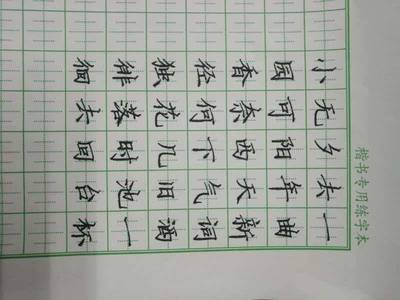 楷书专用练字本
一曲新词酒一杯
去年天气旧池台
夕阳西下几时回
无可奈何花落去
小园香径独徘徊